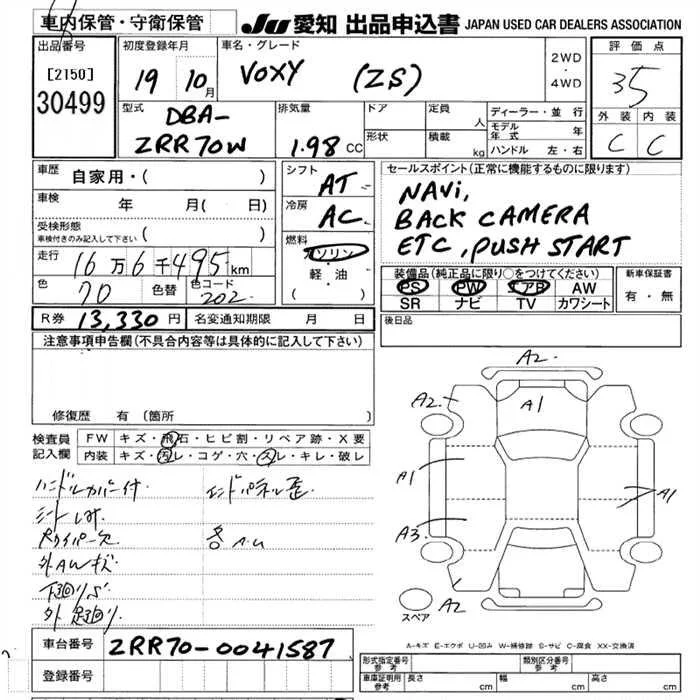 車内保管・守衛保管
JU 愛知 出品申込書 JAPAN USED CAR DEALERS ASSOCIATION
出品番号
[2150]
30499
初度登録年月
19 年 10 月
車名・グレード
VOXY (ZS)
2WD
・
4WD
評価点
35
外装 内装
C C
型式
DBA-
ZRR70W
排気量
1.98 CC
ドア
形状
定員 人
積載 kg
ディーラー・並行
モデル年式 年
ハンドル 左・右
車歴
自家用・( )
車検 年 月( 日)
受検形態
車検付きのみ記入して下さい ( )
走行 16万6千495km
色 70 色替 色コード 202
シフト AT
冷房 AC
燃料
ガソリン
・
軽・油
( )
セールスポイント(正常に機能するものに限ります)
NAVi,
BACK CAMERA
ETC, PUSH START
装備品(純正品に限り○をつけてください)
PS PW エアB AW
SR ナビ TV カワシート
新車保証書
有・無
R券 13,330円 名変通知期限 月 日
後日品
注意事項申告欄(不具合内容等は具体的に記入して下さい)
修復歴 有(箇所 )
検査員記入欄
FW キズ・飛石・ヒビ割・リペア跡・X要
内装 キズ・汚レ・コゲ・穴・スレ・キレ・破レ
ハンドルカバー付
インドパネル歪
各A.U
外AWキズ
下廻りS
A2
A2
A1
A1
A1
A3
A2
スペア
A-キズ E-エクボ U-凹み W-補修跡 S-サビ C-腐食 XX-交換済
車台番号 ZRR70-0041587
登録番号
形式指定番号 参考
類別区分番号 参考
車庫証明用 参考 長さ cm 幅 cm 高さ cm